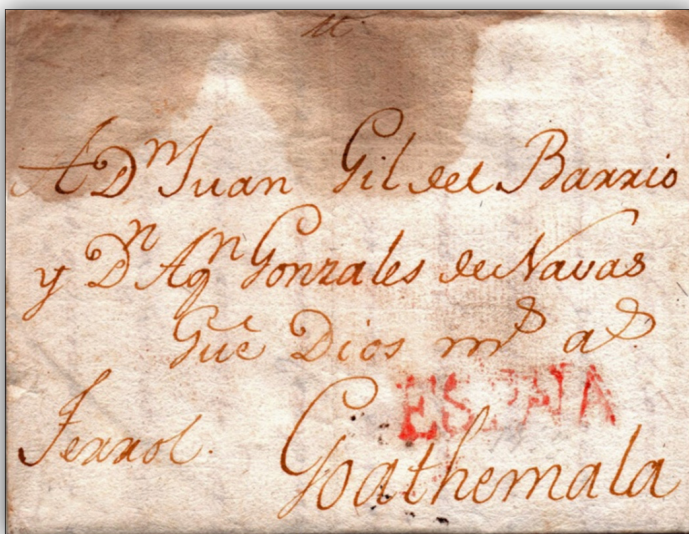 A Dn Juan Gil del Barrio
y Dn Agn Gonzales de Navas
Gue Dios ms as
ESPAÑA
Ferrol. Goathemala